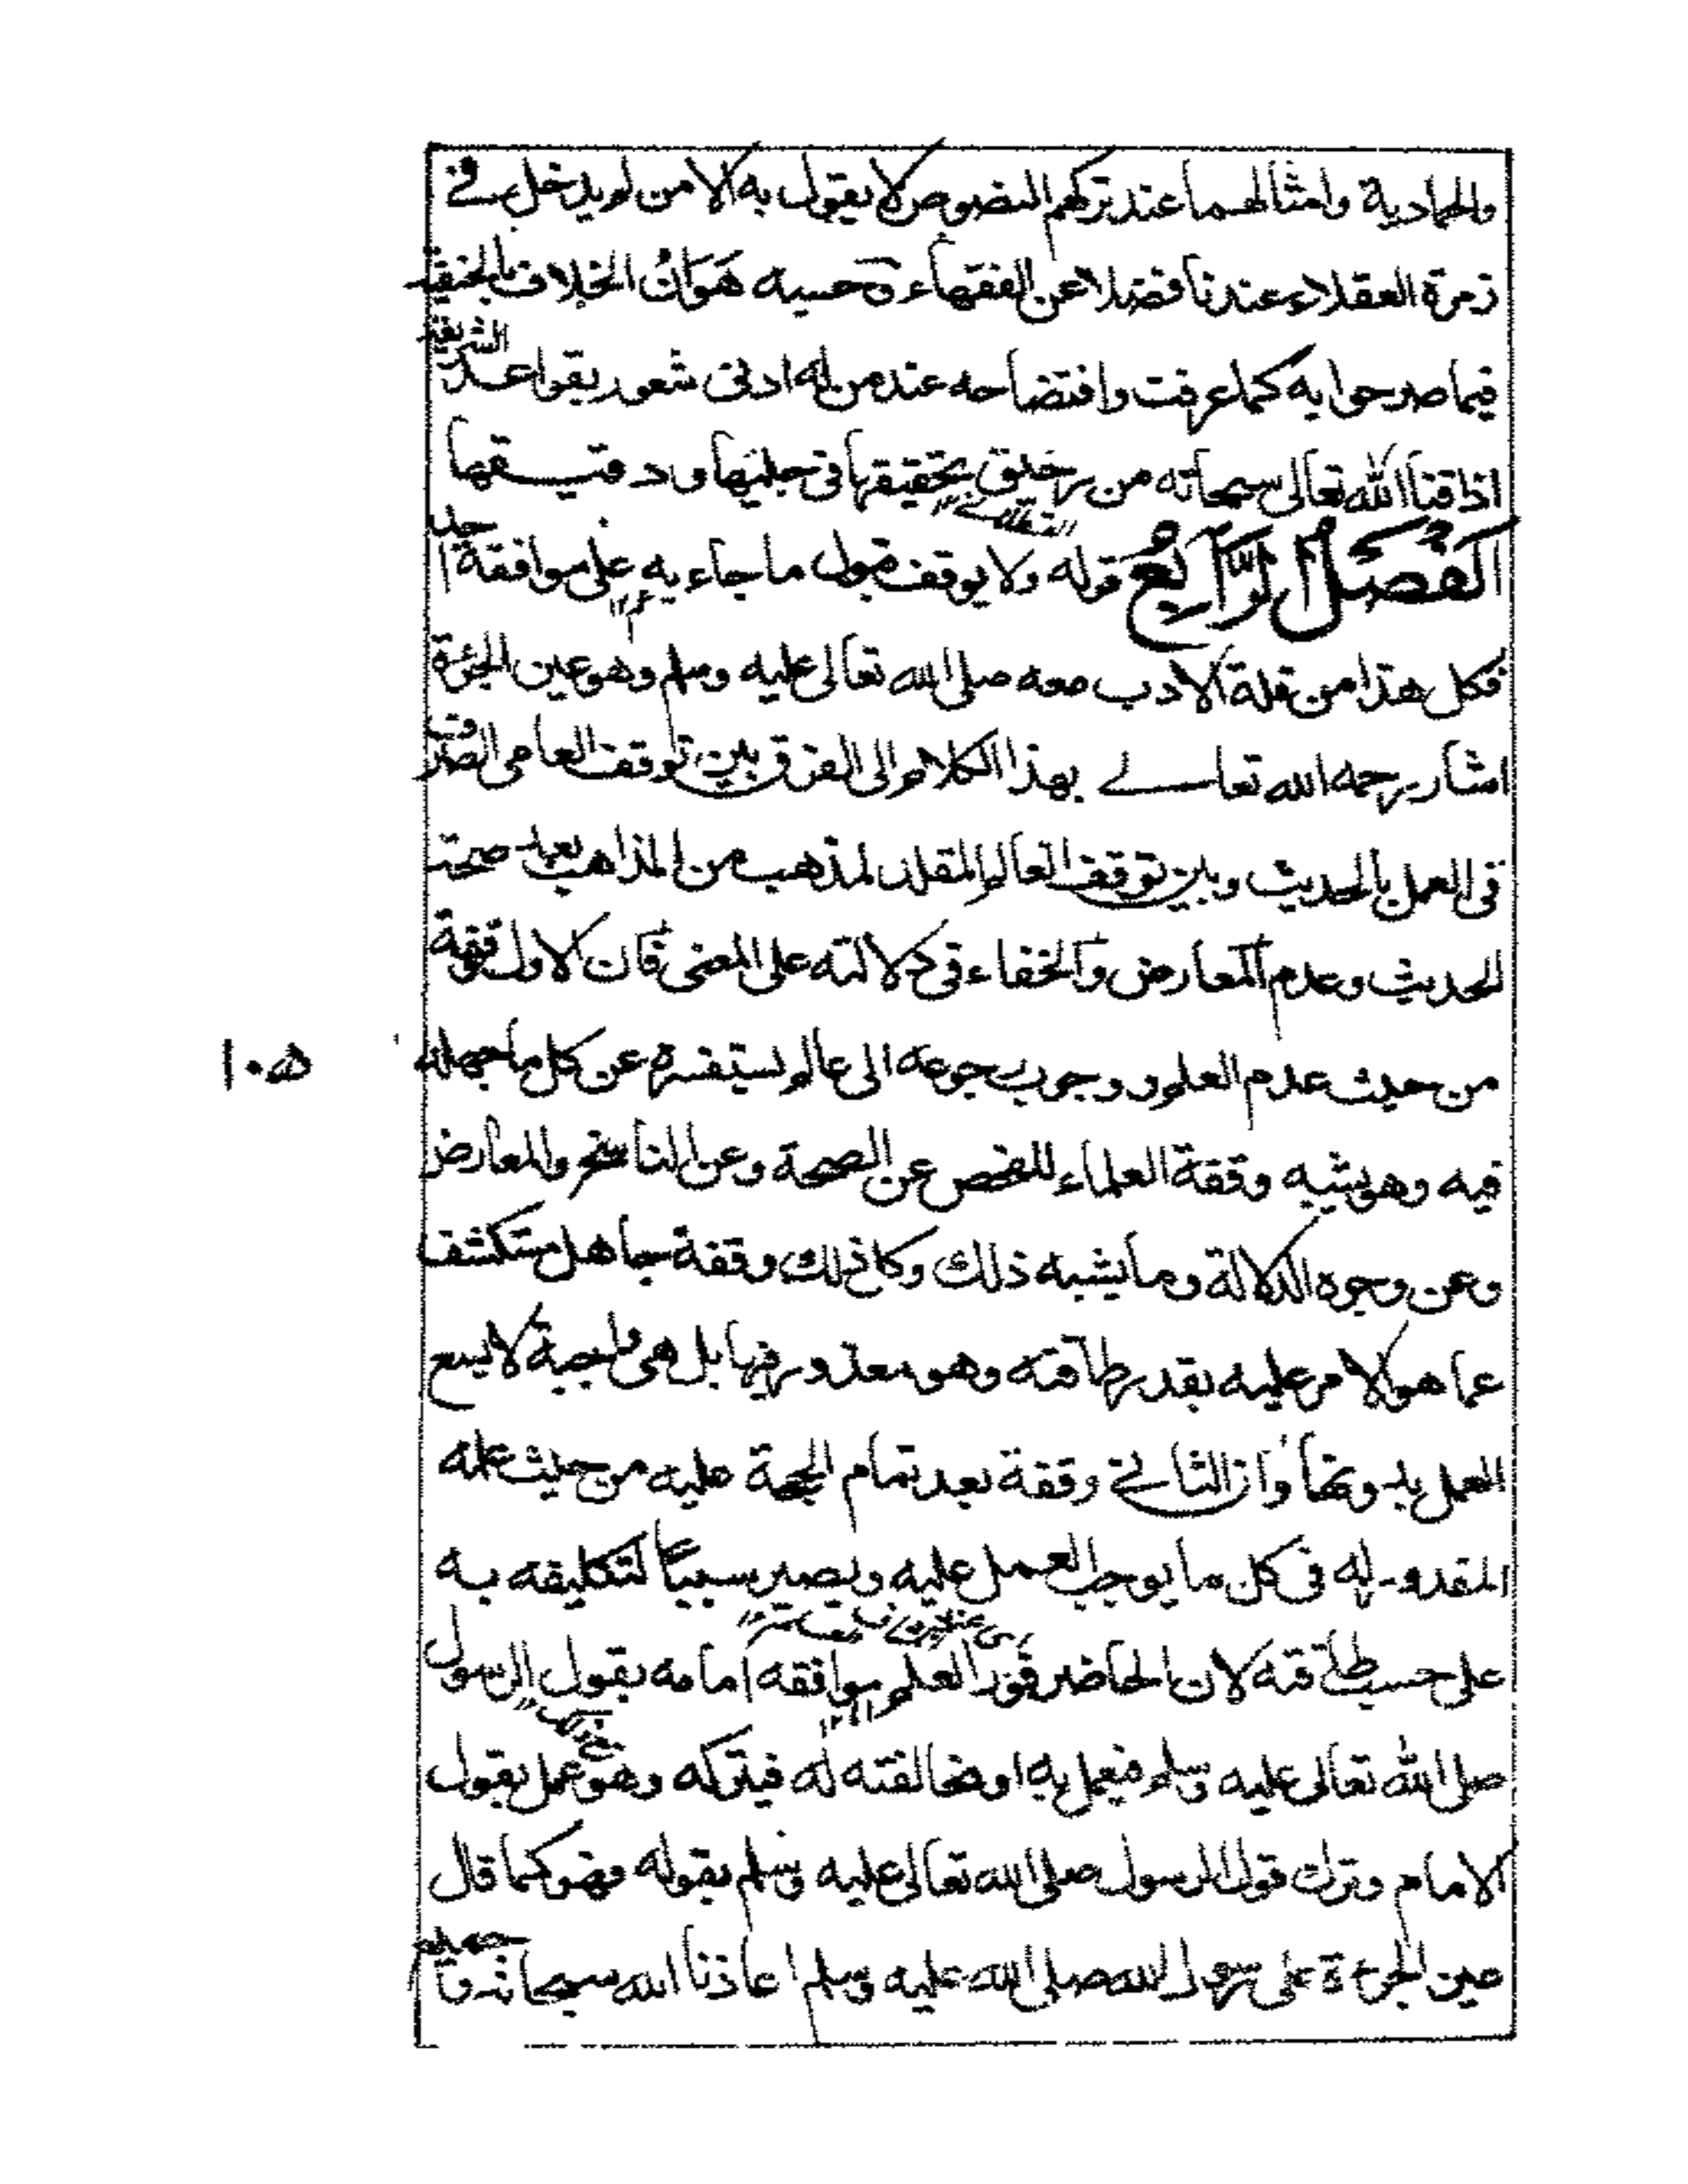 والحمادية وامثالهما عند تركهم النصوص لا يقول به الا من لم يدخل في
زمرة العقلاء عندنا فضلا عن الفقهاء وحسبه هوان الخلاف بالحنفية
فيما صرحوا به كما عرفت وافتضاحه عند من له ادنى شعور بقواعد الشريفة
اذاقنا الله تعالى سبحانه من رحيق تحقيقها في جليها ودقيقها
الفصل الرابع قوله ولا يوقف قبول ما جاء به على موافقة احد
فكل هذا من قلة الادب معه صلى الله تعالى عليه وسلم وهو عين الجرءة
اشار رحمه الله تعالے بهذا الكلام الى الفرق بين توقف العامى الصرف
فى العمل بالحديث وبين توقف العالم المقلد لمذهب من المذاهب بعد صحة
الحديث وعدم المعارض والخفاء فى دلالته على المعنى فان الاول توقفه
من حيث عدم العلم ووجوب رجوعه الى عالم يستفسره عن كل ما جهله
١٠٥
فيه وهو يشبه وقفة العلماء للفحص عن الصحة وعن الناسخ والمعارض
وعن وجوه الدلالة وما يشبه ذلك وكان ذلك وقفة جاهل مستكشف
عما هو الامر عليه بقدر طاقته وهو معذور فيها بل هى واجبة لا يسع
العمل بدونها وان الثانے وقفة بعد تمام الحجة عليه من حيث علمه
المقدور له فى كل ما يوجب العمل عليه ويصير سببا لتكليفه به
على حسب طاقته لان الحاضر فى العلم موافقه امامه بقول الرسول
صلى الله تعالى عليه وسلم فيعمل به او مخالفته له فيتركه وهو عمل بقول
الامام وترك قول الرسول صلى الله تعالى عليه وسلم بقوله فهو كما قال
عين الجرءة على رسول الله صلى الله عليه وسلم اعاذنا الله سبحانه و جميع